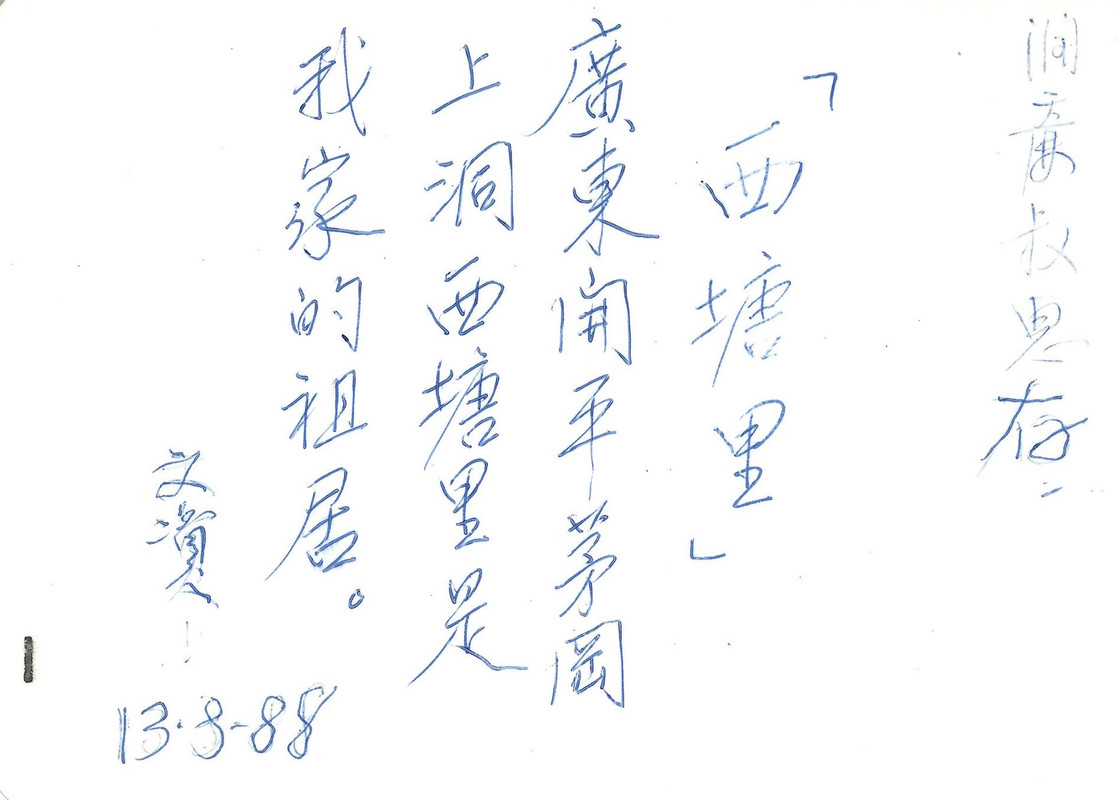 潤慶叔惠存
「西塘里」
廣東開平茅岡
上洞西塘里是
我家的祖居。
文濱
13·8-88